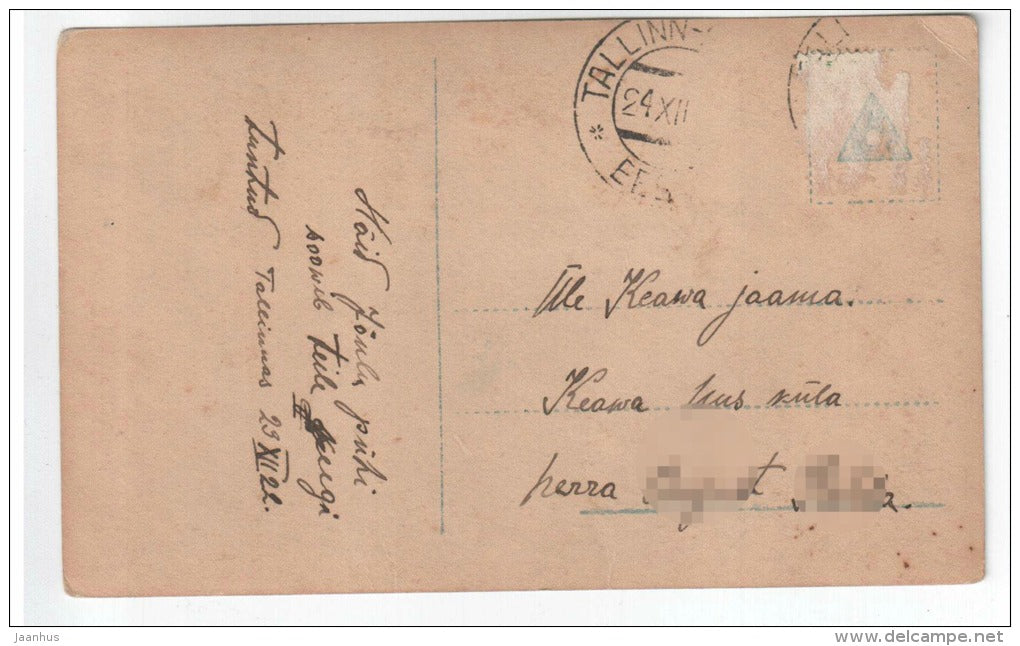 TALLINN
24 XII
EES
Häid Jõulu pühi
soowib teile keegi
tuntud Tallinnas 23 XII 22.
Üle Keawa jaama.
Keawa küla
herra
Jaanhus
www.delcampe.net